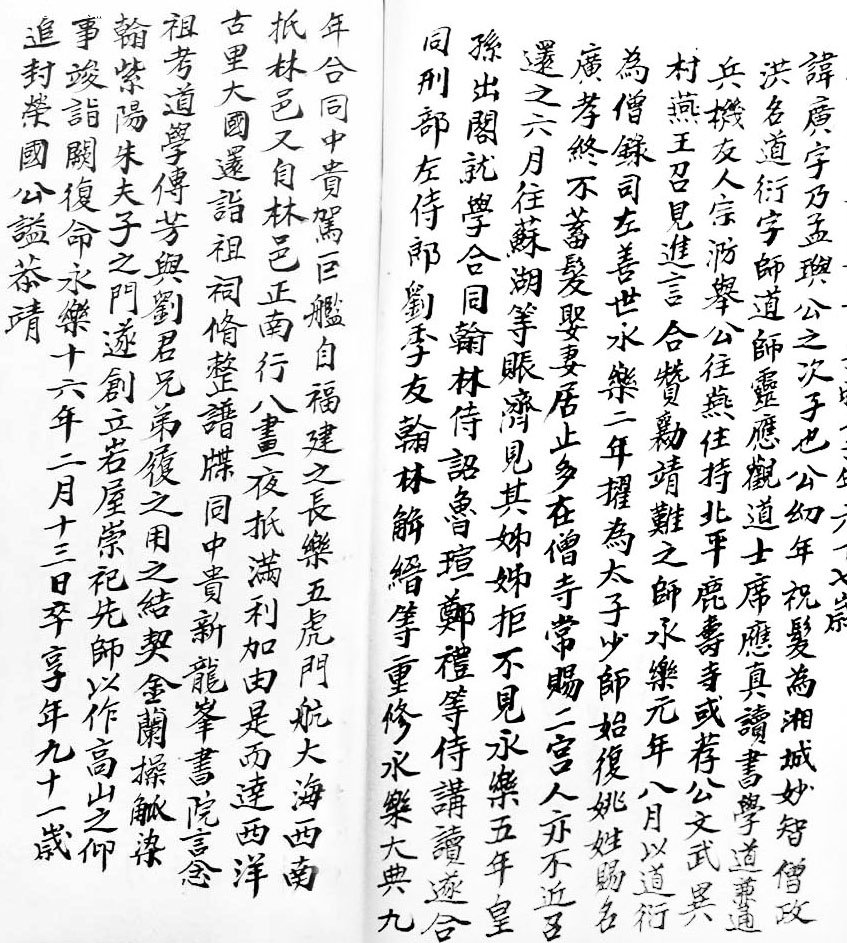 諱廣字乃孟璵公之次子也公幼年祝髮為湘城妙智僧政
洪名道衍字師道師靈應觀道士席應真讀書學道兼通
兵機友人宗泐舉公往燕住持北平鹿壽寺或荐公文武異
村燕王召見進言合贊勷靖難之師永樂元年八月以道衍
為僧錄司左善世永樂二年擢為太子少師始復姚姓賜名
廣孝終不蓄髮娶妻居止多在僧寺常賜二宮人亦不近召
還之六月往蘇湖等賬濟見其姊姊拒不見永樂五年皇
孫出閣就學合同翰林侍詔魯瑄鄭禮等侍講讀遂合
同刑部左侍郎劉季友翰林解縉等重修永樂大典九
年合同中貴駕巨艦自福建之長樂五虎門航大海西南
抵林邑又自林邑正南行八晝夜抵滿利加由是而達西洋
古里大國還詣祖祠脩整譜牒同中貴新龍峯書院言念
祖考道學傳芳與劉君兄弟履之用之結契金蘭操觚染
翰紫陽朱夫子之門遂創立岩屋崇祀先師以作高山之仰
事竣詣闕復命永樂十六年二月十三日卒享年九十一歲
追封榮國公謚恭靖